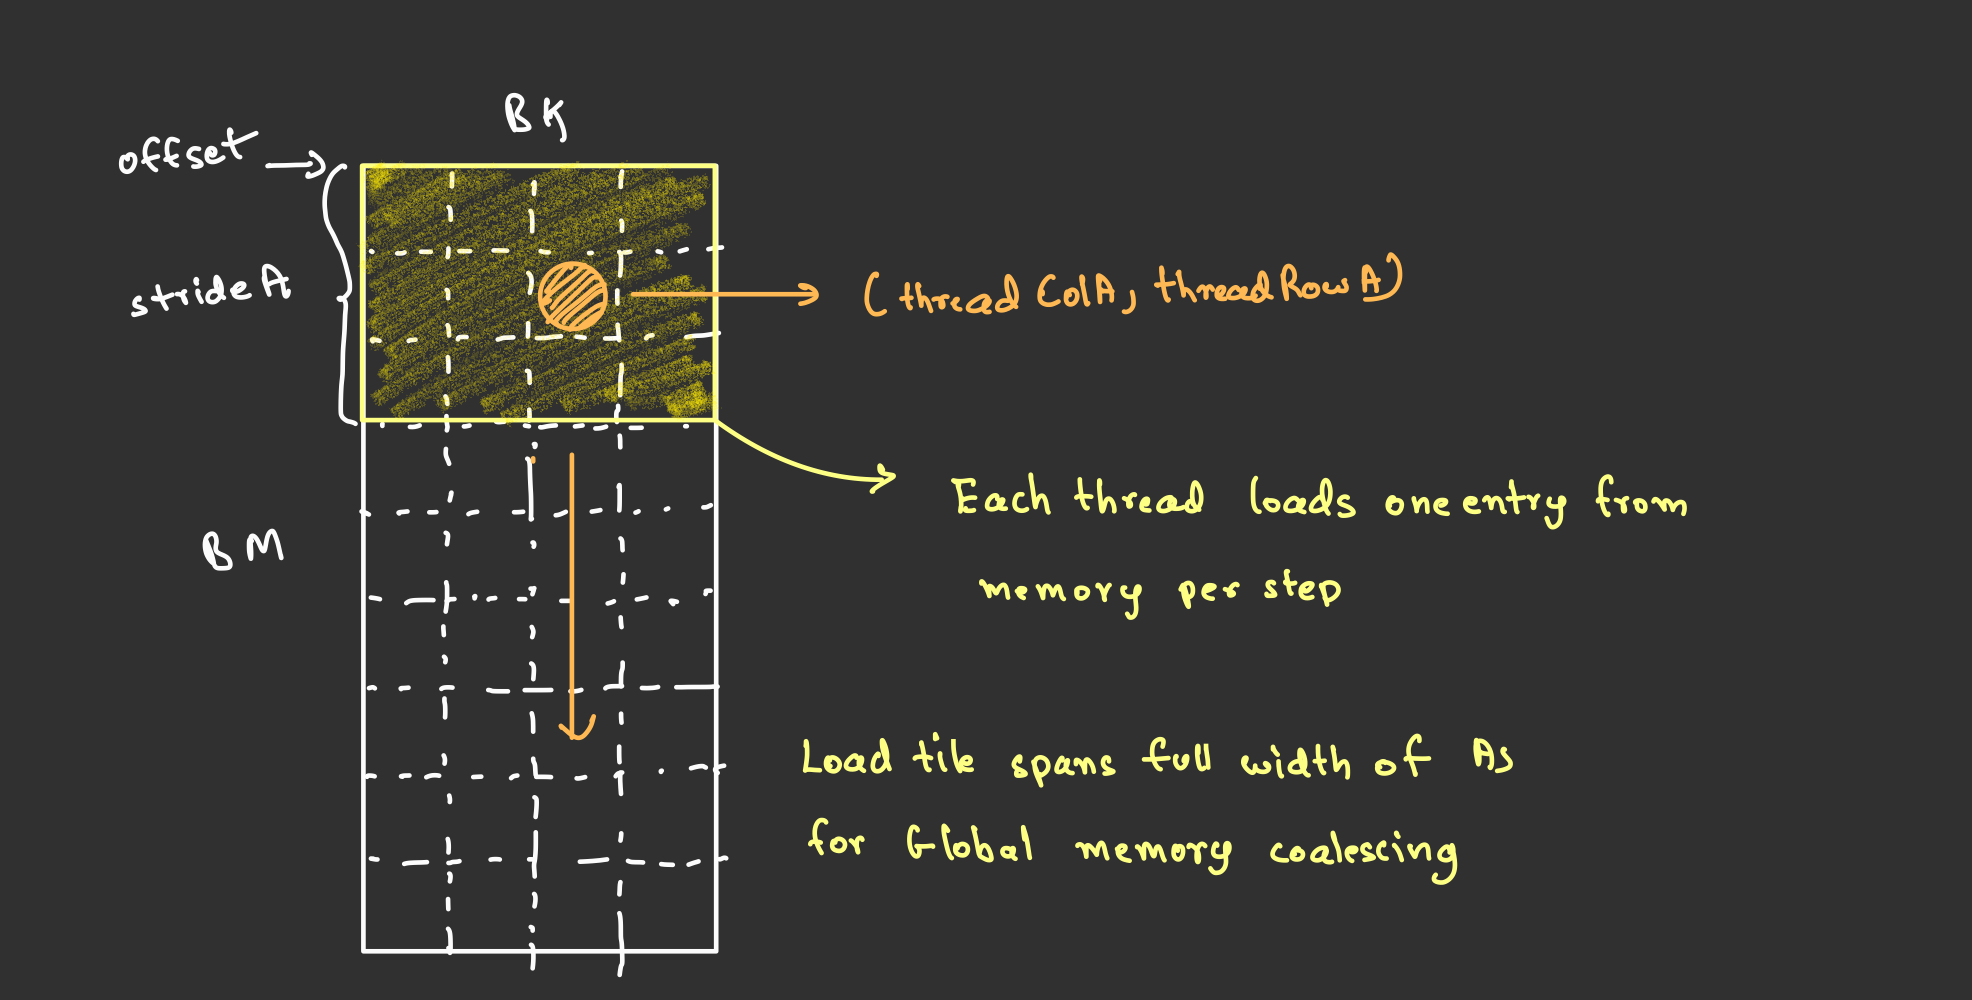 BK
offset
strideA
(threadColA, threadRowA)
Each thread loads one entry from
memory per step
BM
Load tile spans full width of As
for Global memory coalescing